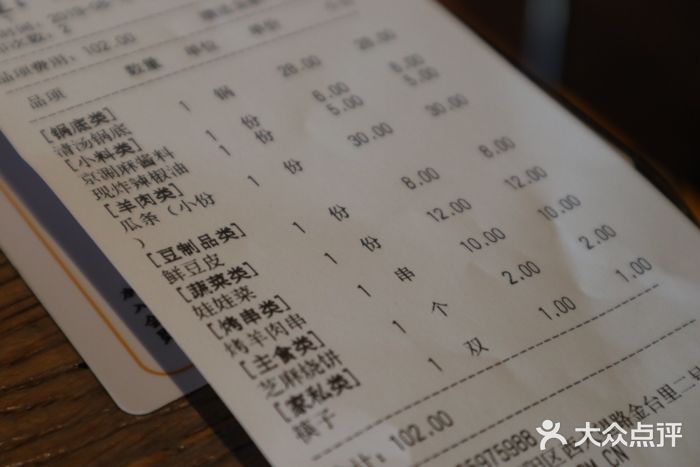 品项费用:102.00
品项 数量 单位 单价
[锅底类]
清汤锅底 1 锅 28.00 28.00
[小料类]
京涮麻酱料 1 份 6.00 6.00
现炸辣椒油 1 份 5.00 5.00
[羊肉类]
瓜条(小份 1 份 30.00 30.00
)
[豆制品类]
鲜豆皮 1 份 8.00 8.00
[蔬菜类]
娃娃菜 1 份 12.00 12.00
[烤串类]
烤羊肉串 1 串 10.00 10.00
[主食类]
芝麻烧饼 1 个 2.00 2.00
[家私类]
筷子 1 双 1.00 1.00
102.00
5975988
路金台里二号
大众点评